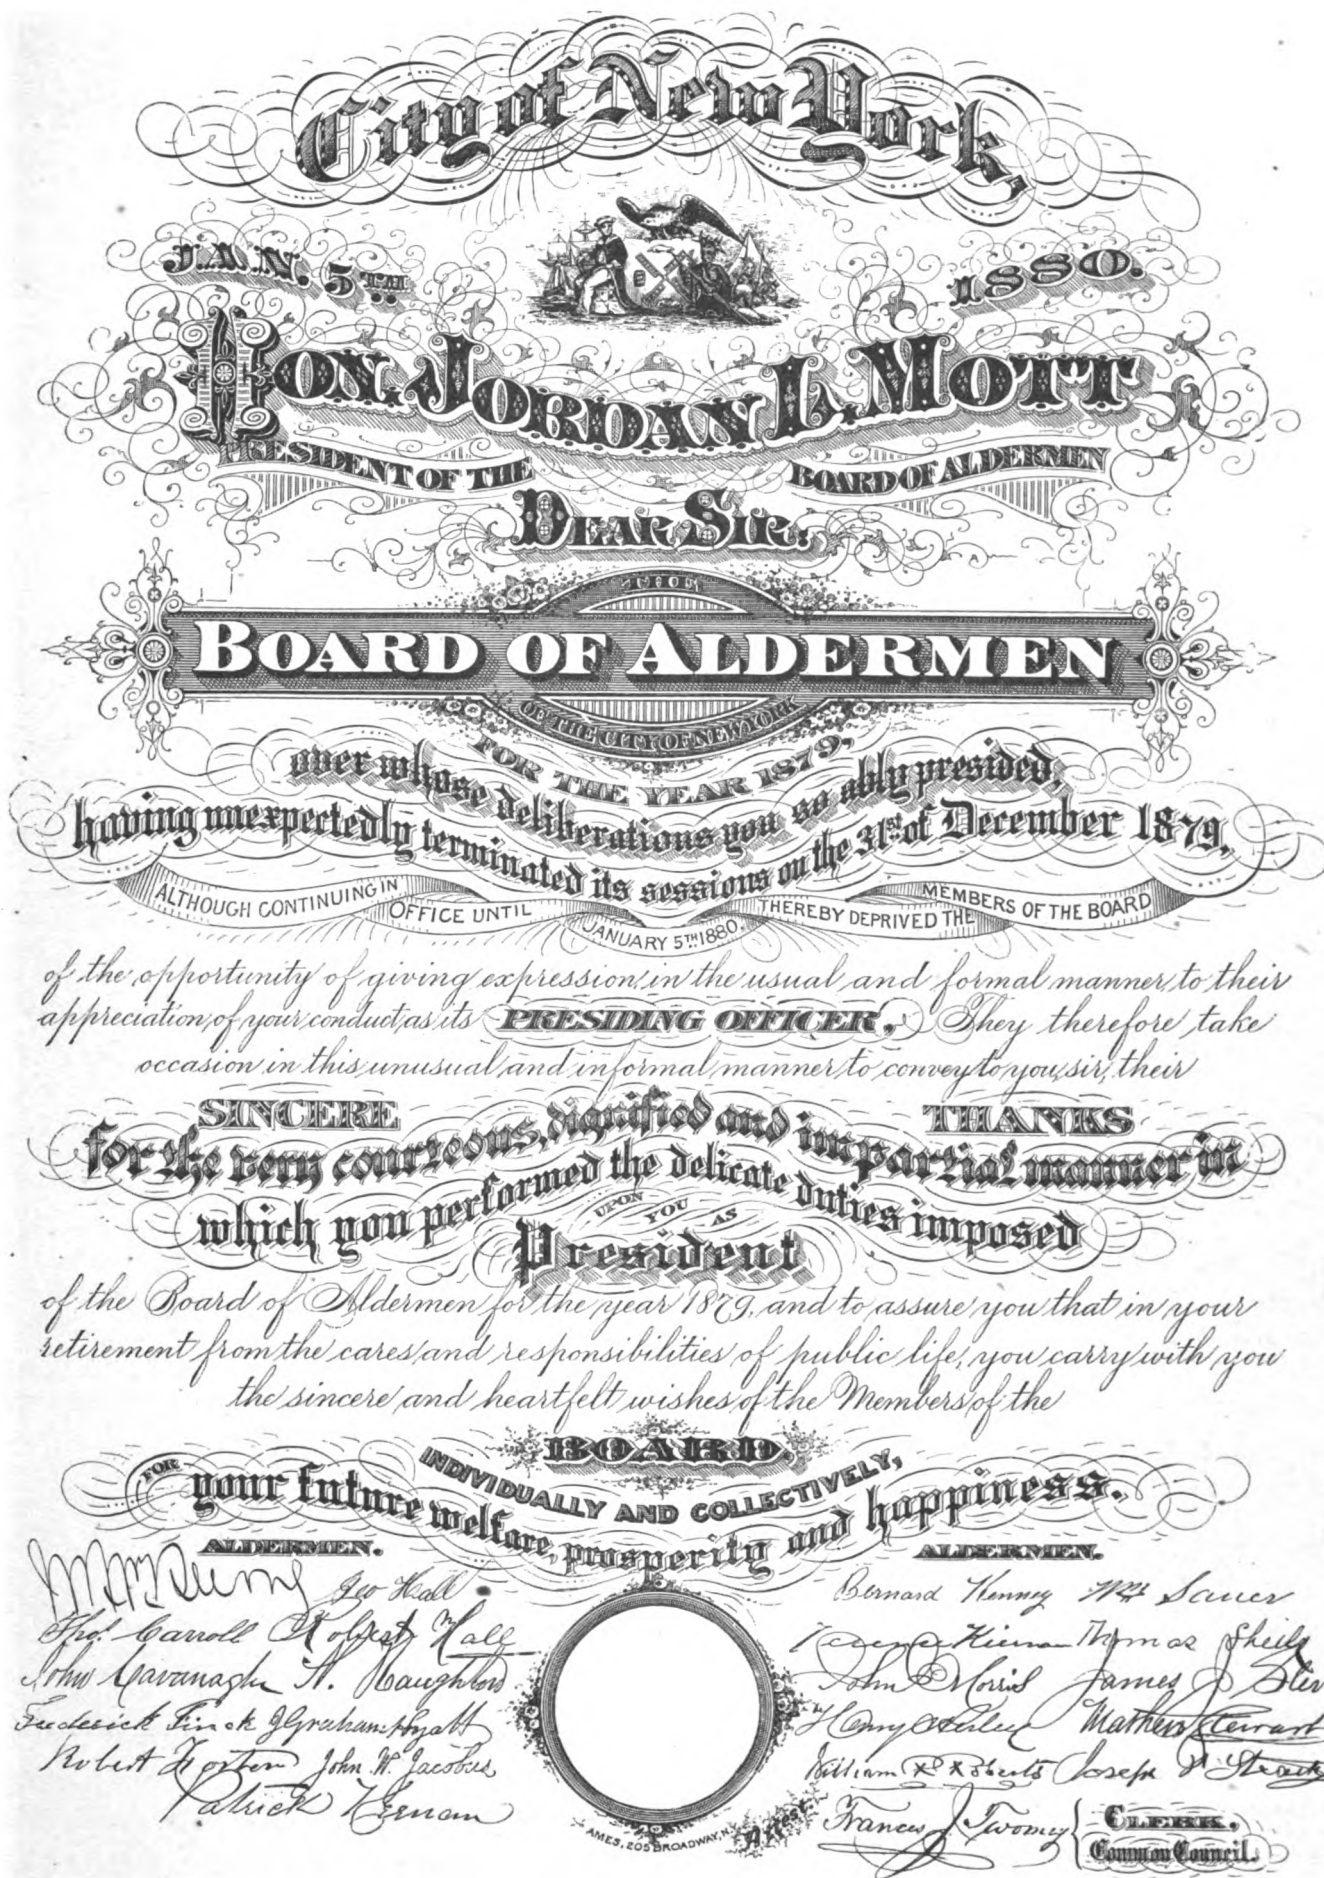 City of New York,
JAN. 5TH 1880.
HON. JORDAN L. MOTT
PRESIDENT OF THE BOARD OF ALDERMEN
DEAR SIR:
THE
BOARD OF ALDERMEN
OF THE CITY OF NEW YORK
FOR THE YEAR 1879,
over whose deliberations you so ably presided,
having unexpectedly terminated its sessions on the 31st of December 1879,
ALTHOUGH CONTINUING IN OFFICE UNTIL JANUARY 5TH 1880, THEREBY DEPRIVED THE MEMBERS OF THE BOARD
of the opportunity of giving expression, in the usual and formal manner, to their
appreciation, of your conduct, as its PRESIDING OFFICER. They therefore take
occasion in this unusual and informal manner to convey to you, sir, their
SINCERE THANKS
for the very courteous, dignified and impartial manner in
which you performed the delicate duties imposed
UPON YOU AS
President
of the Board of Aldermen for the year 1879, and to assure you that in your
retirement from the cares and responsibilities of public life, you carry with you
the sincere and heartfelt wishes of the Members of the
BOARD,
INDIVIDUALLY AND COLLECTIVELY,
FOR your future welfare, prosperity and happiness.
ALDERMEN. ALDERMEN.
Geo Hall Bernard Kenney Wm Sauer
Thos. Carroll Robert Hall Terence Kiernan Thomas Sheils
John Cavanagh N. Haughton John J Morris James J Slevin
Frederick Finck J Graham Hyatt Henry Haffen Mathew Stewart
Robert Foster John W. Jacobus William R Roberts Joseph P Strack
Patrick Keenan
AMES, 205 BROADWAY, N.Y. Attest. Francis J. Twomey CLERK,
Common Council.